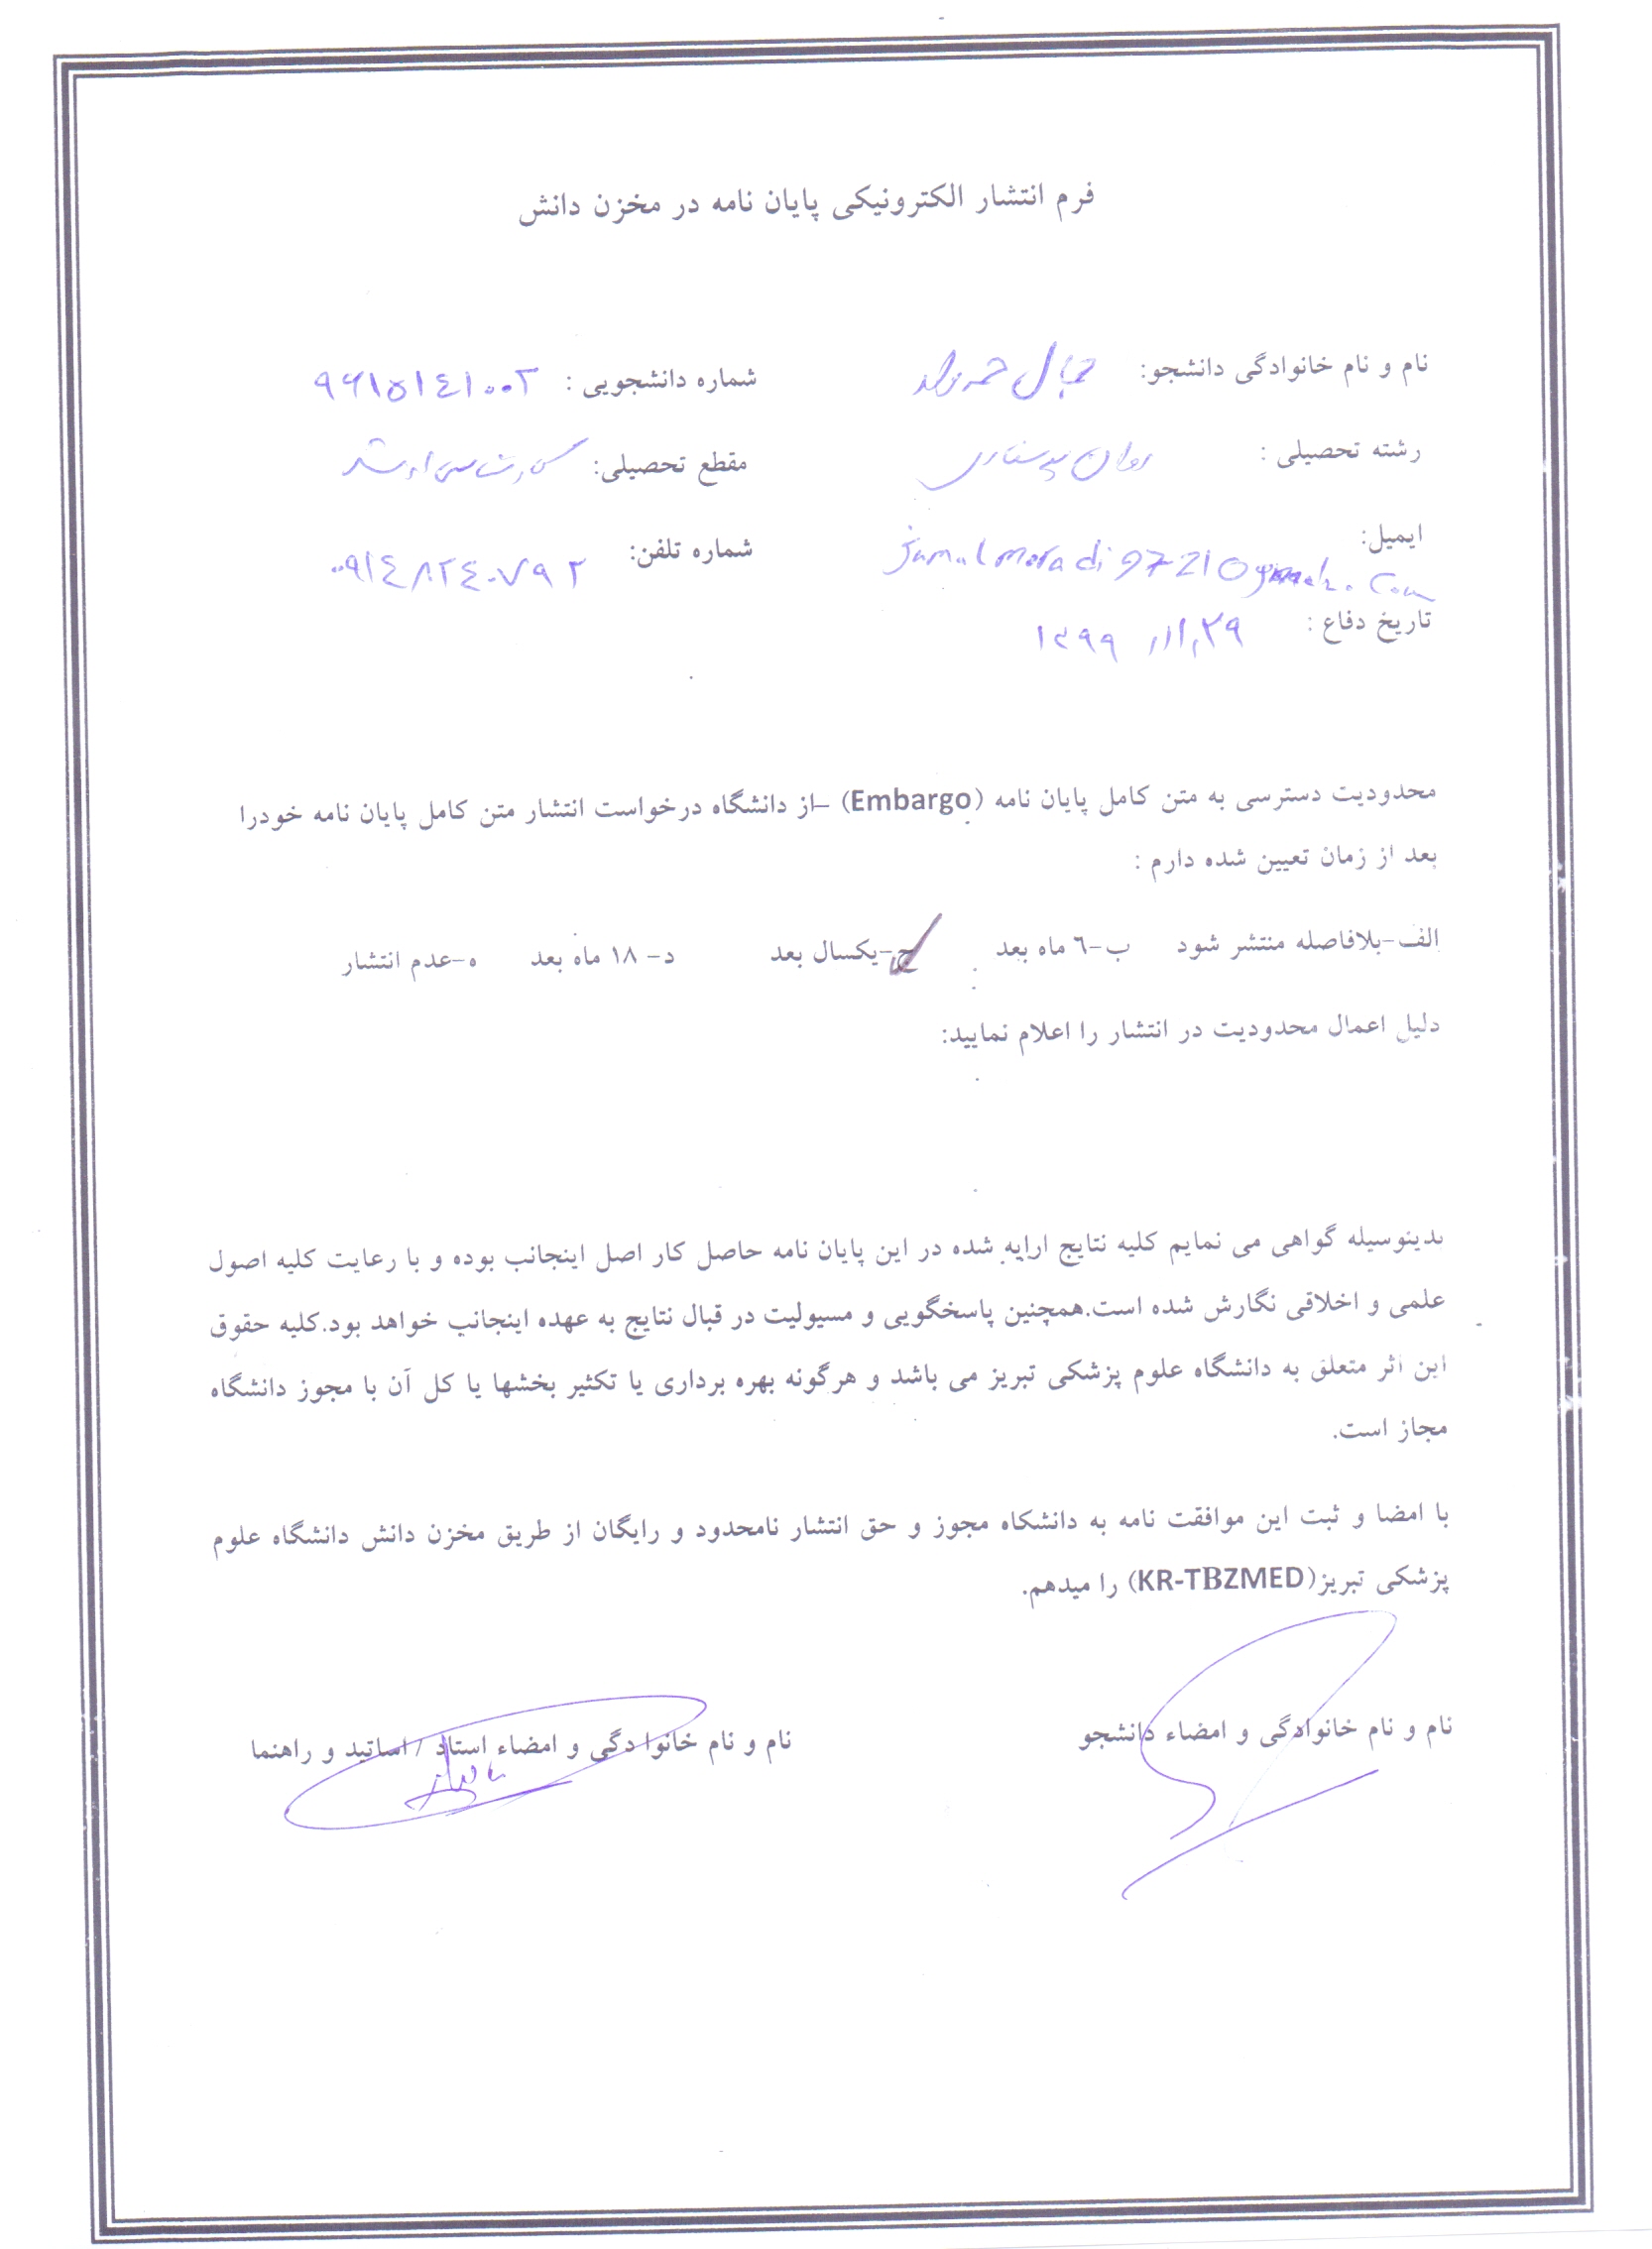 فرم انتشار الکترونیکی پایان نامه در مخزن دانش
نام و نام خانوادگی دانشجو: جمال شماره دانشجویی : ٩٩١٥١٤١٠٠٢
رشته تحصیلی : روان پرستاری مقطع تحصیلی: کارشناسی ارشد
ایمیل: شماره تلفن: ٠٩١٤٨٢٤٠٧٩٢
تاریخ دفاع : ١٣٩٩
محدودیت دسترسی به متن کامل پایان نامه (Embargo) –از دانشگاه درخواست انتشار متن کامل پایان نامه خودرا
بعد از زمان تعیین شده دارم :
الف-بلافاصله منتشر شود ب-٦ ماه بعد ج-یکسال بعد د- ١٨ ماه بعد ه-عدم انتشار
دلیل اعمال محدودیت در انتشار را اعلام نمایید:
بدینوسیله گواهی می نمایم کلیه نتایج ارایه شده در این پایان نامه حاصل کار اصل اینجانب بوده و با رعایت کلیه اصول
علمی و اخلاقی نگارش شده است.همچنین پاسخگویی و مسیولیت در قبال نتایج به عهده اینجانب خواهد بود.کلیه حقوق
این اثر متعلق به دانشگاه علوم پزشکی تبریز می باشد و هرگونه بهره برداری یا تکثیر بخشها یا کل آن با مجوز دانشگاه
مجاز است.
با امضا و ثبت این موافقت نامه به دانشکاه مجوز و حق انتشار نامحدود و رایگان از طریق مخزن دانش دانشگاه علوم
پزشکی تبریز(KR-TBZMED) را میدهم.
نام و نام خانوادگی و امضاء دانشجو نام و نام خانوادگی و امضاء استاد / اساتید و راهنما